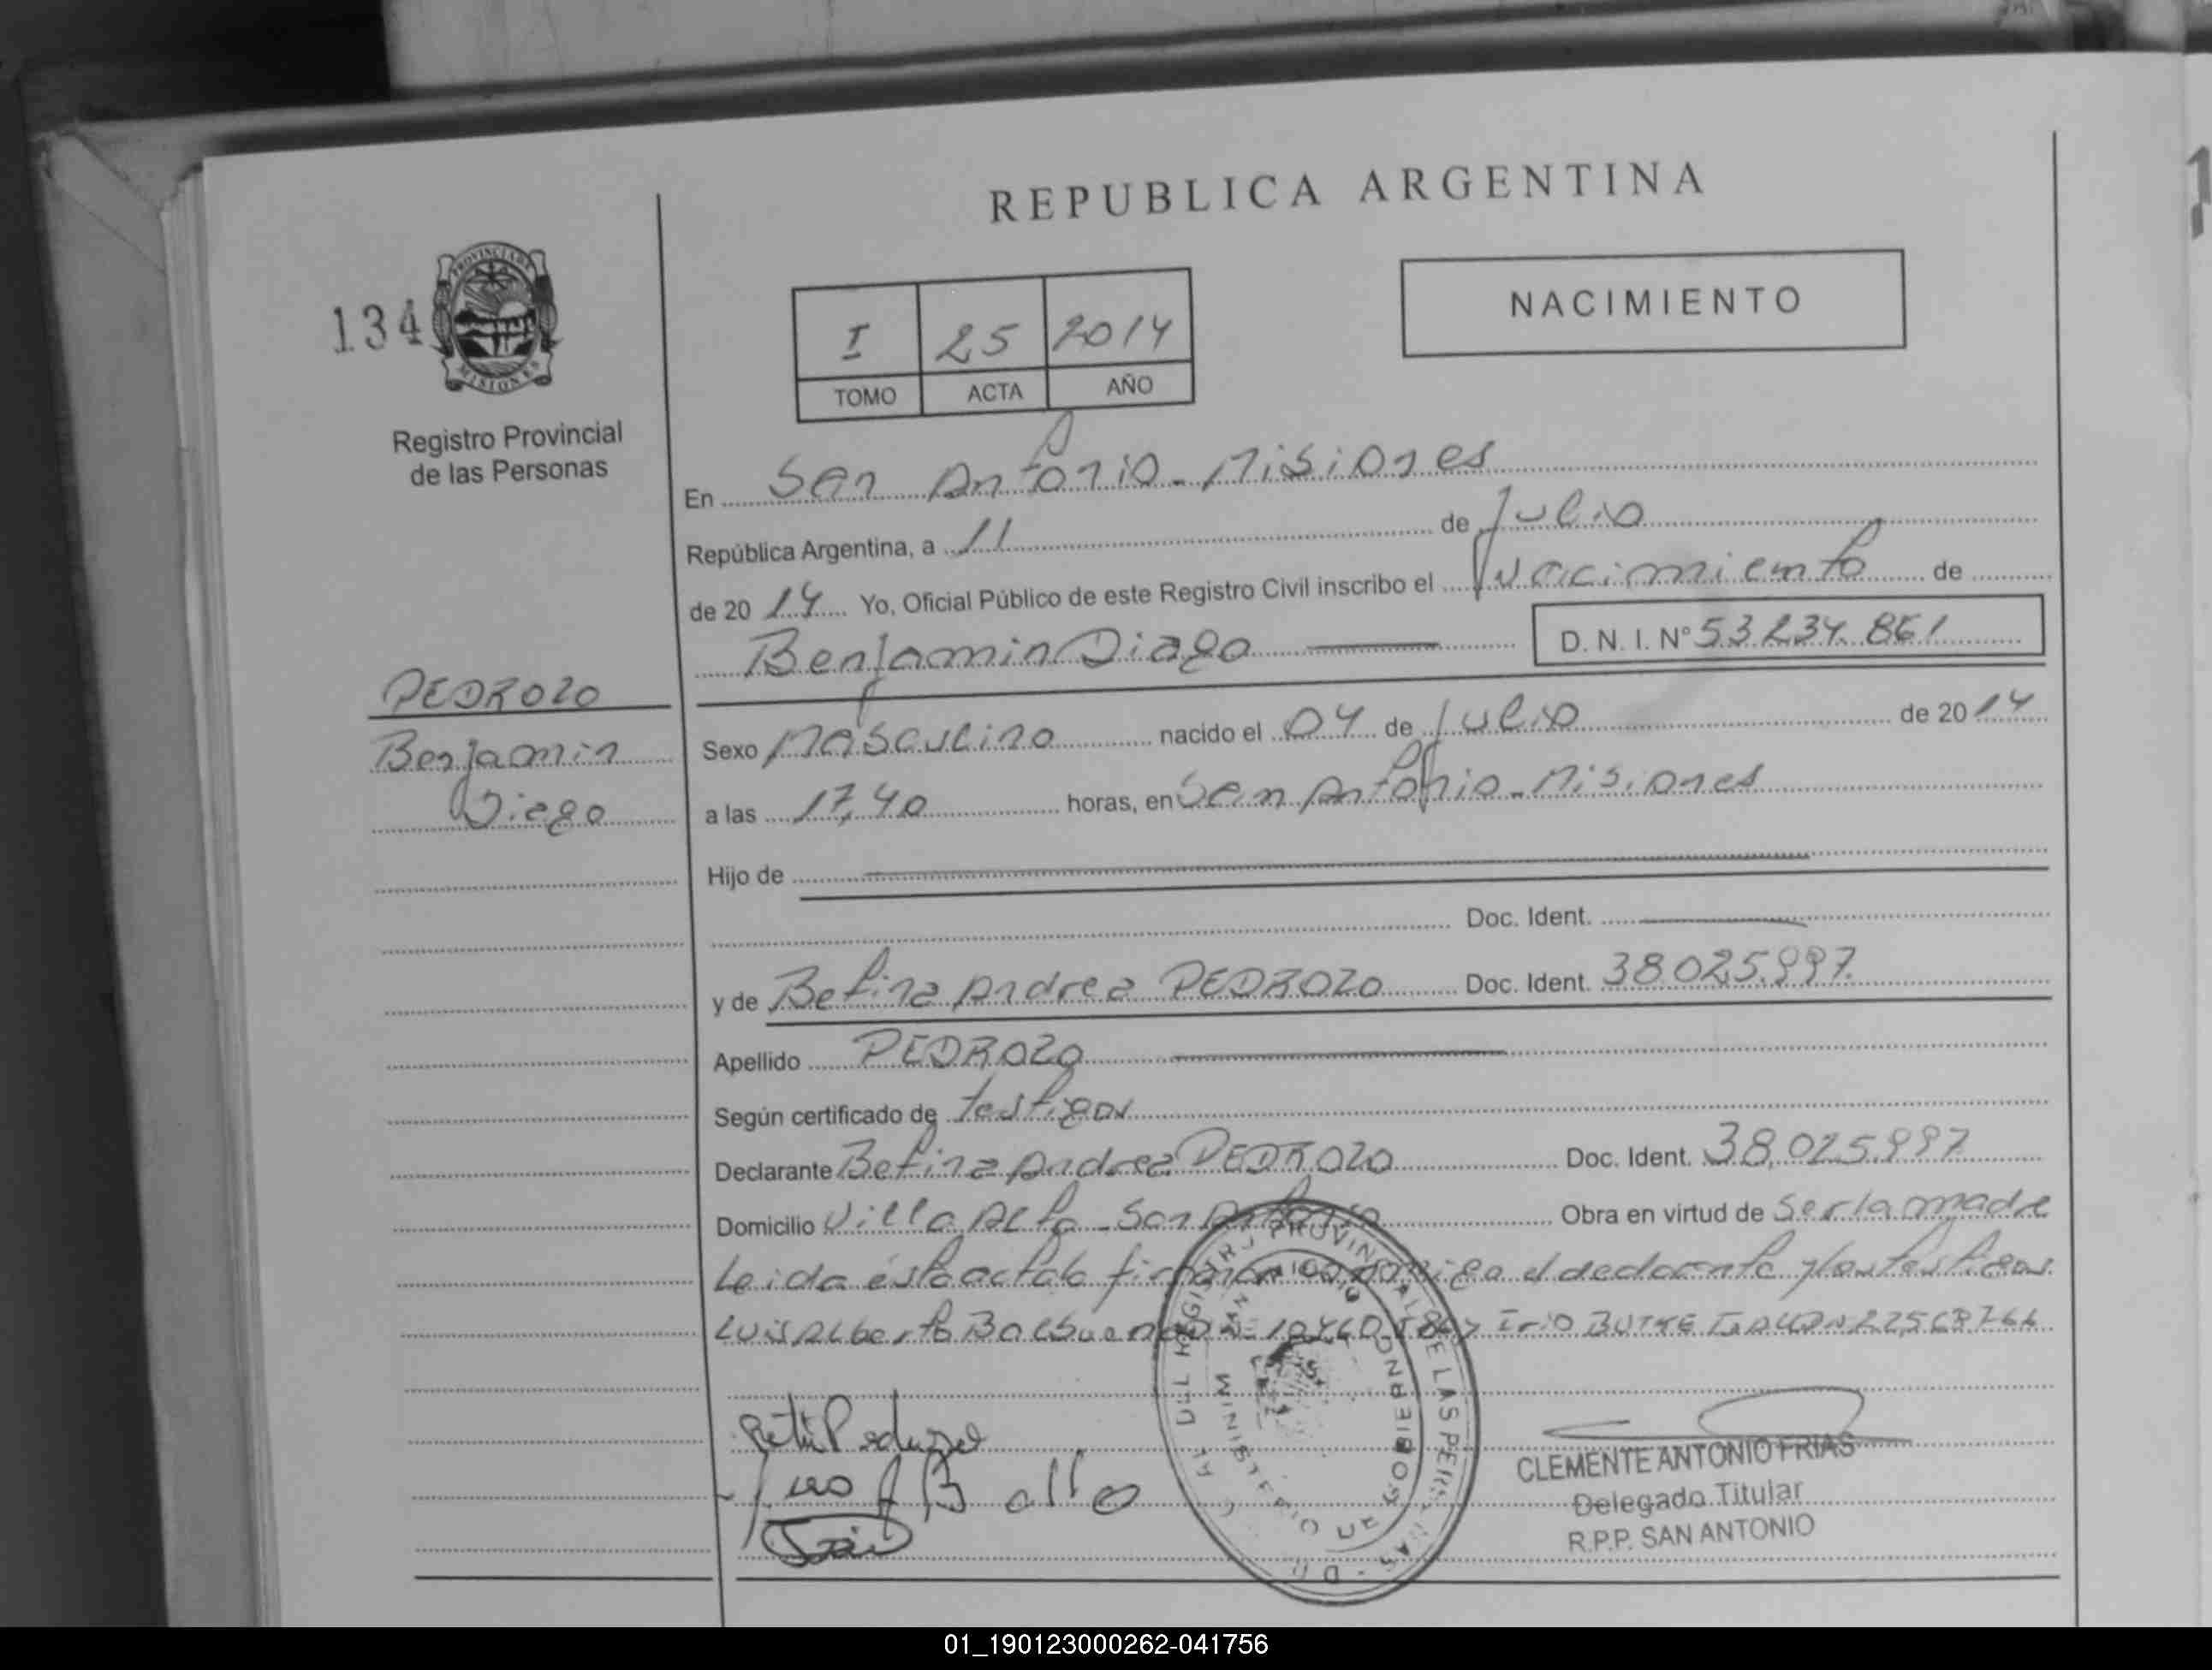 REPUBLICA ARGENTINA
134
PROVINCIA DE
MISIONES
Registro Provincial
de las Personas
I 25 2014
TOMO ACTA AÑO
NACIMIENTO
En San Antonio - Misiones
República Argentina, a 11 de Julio
de 20 14 Yo, Oficial Público de este Registro Civil inscribo el Nacimiento de
Benjamin Diego D. N. I. N° 53234861
PEDROZO
Benjamin
Diego
Sexo Masculino nacido el 04 de Julio de 20 14
a las 17,40 horas, en San Antonio - Misiones
Hijo de
Doc. Ident.
y de Betina Andrea PEDROZO Doc. Ident. 38.025.997
Apellido PEDROZO
Según certificado de testigos
Declarante Betina Andrea PEDROZO Doc. Ident. 38.025.997
Domicilio Villa Alta - San Antonio Obra en virtud de Ser la madre
Leida esta acta la firman conmigo el declarante y los testigos
Luis Alberto
CLEMENTE ANTONIO FRIAS
Delegado Titular
R.P.P. SAN ANTONIO
01_190123000262-041756